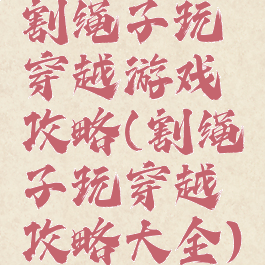 割绳子玩
穿越游戏
攻略(割绳
子玩穿越
攻略大全)